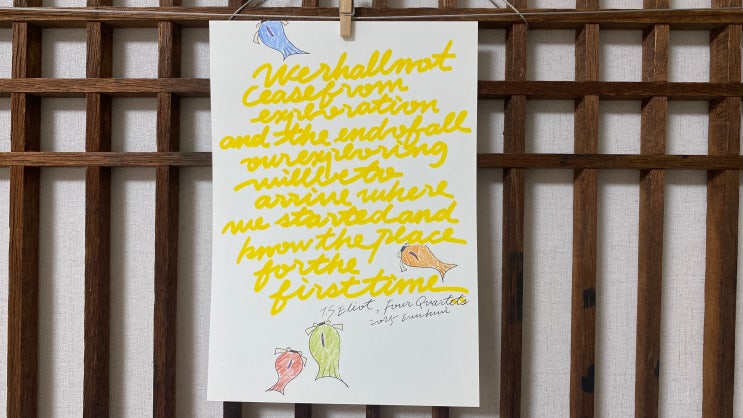 We shall not
cease from
exploration
and the end of all
our exploring
will be to
arrive where
we started and
know the place
for the
first time
TS Eliot, Four Quartets
2025 Eunhui